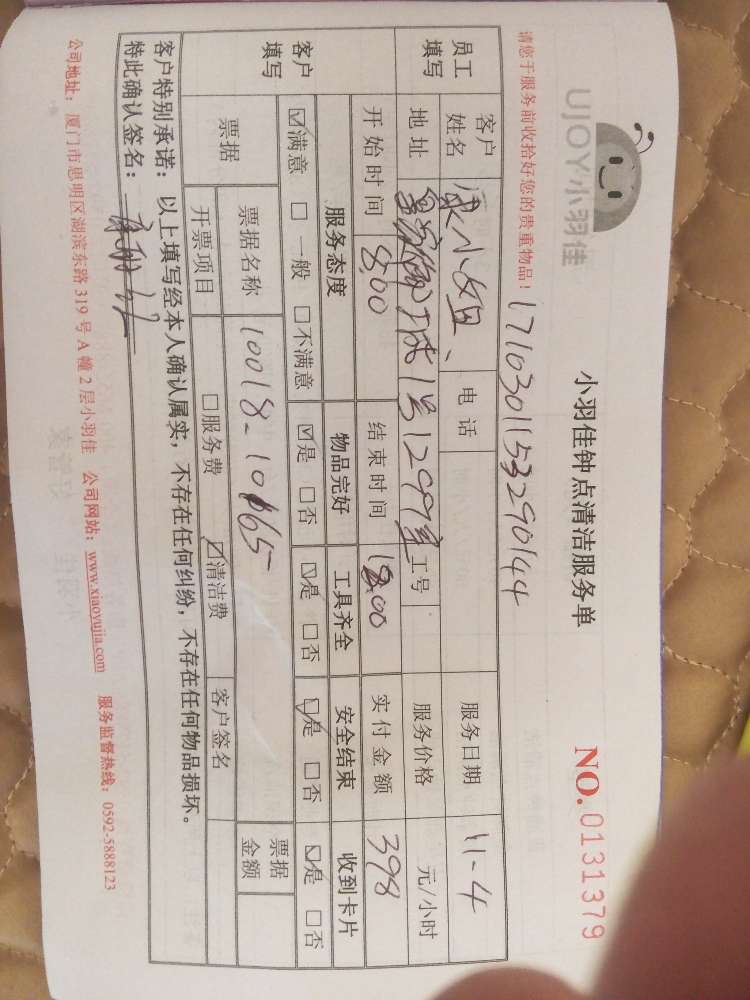 UJOY小羽佳
小羽佳钟点清洁服务单
NO. 0131379
请您于服务前收拾好您的贵重物品！
1710301153290144
员工填写 客户姓名 小姐、 电话 服务日期 11-4
地址 1299室 工号 服务价格 元/小时
开始时间 8:00 结束时间 18:00 实付金额 398
客户填写 服务态度 物品完好 工具齐全 安全结束 收到卡片
☑满意 □一般 □不满意 ☑是 □否 ☑是 □否 ☑是 □否 ☑是 □否
票据 票据名称 10018-10165 票据金额
开票项目 □服务费 ☑清洁费 客户签名
客户特别承诺：以上填写经本人确认属实，不存在任何纠纷，不存在任何物品损坏。
特此确认签名：
公司地址：厦门市思明区湖滨东路 319 号 A 幢 2 层小羽佳 公司网站：www.xiaoyujia.com 服务监督热线：0592-5888123